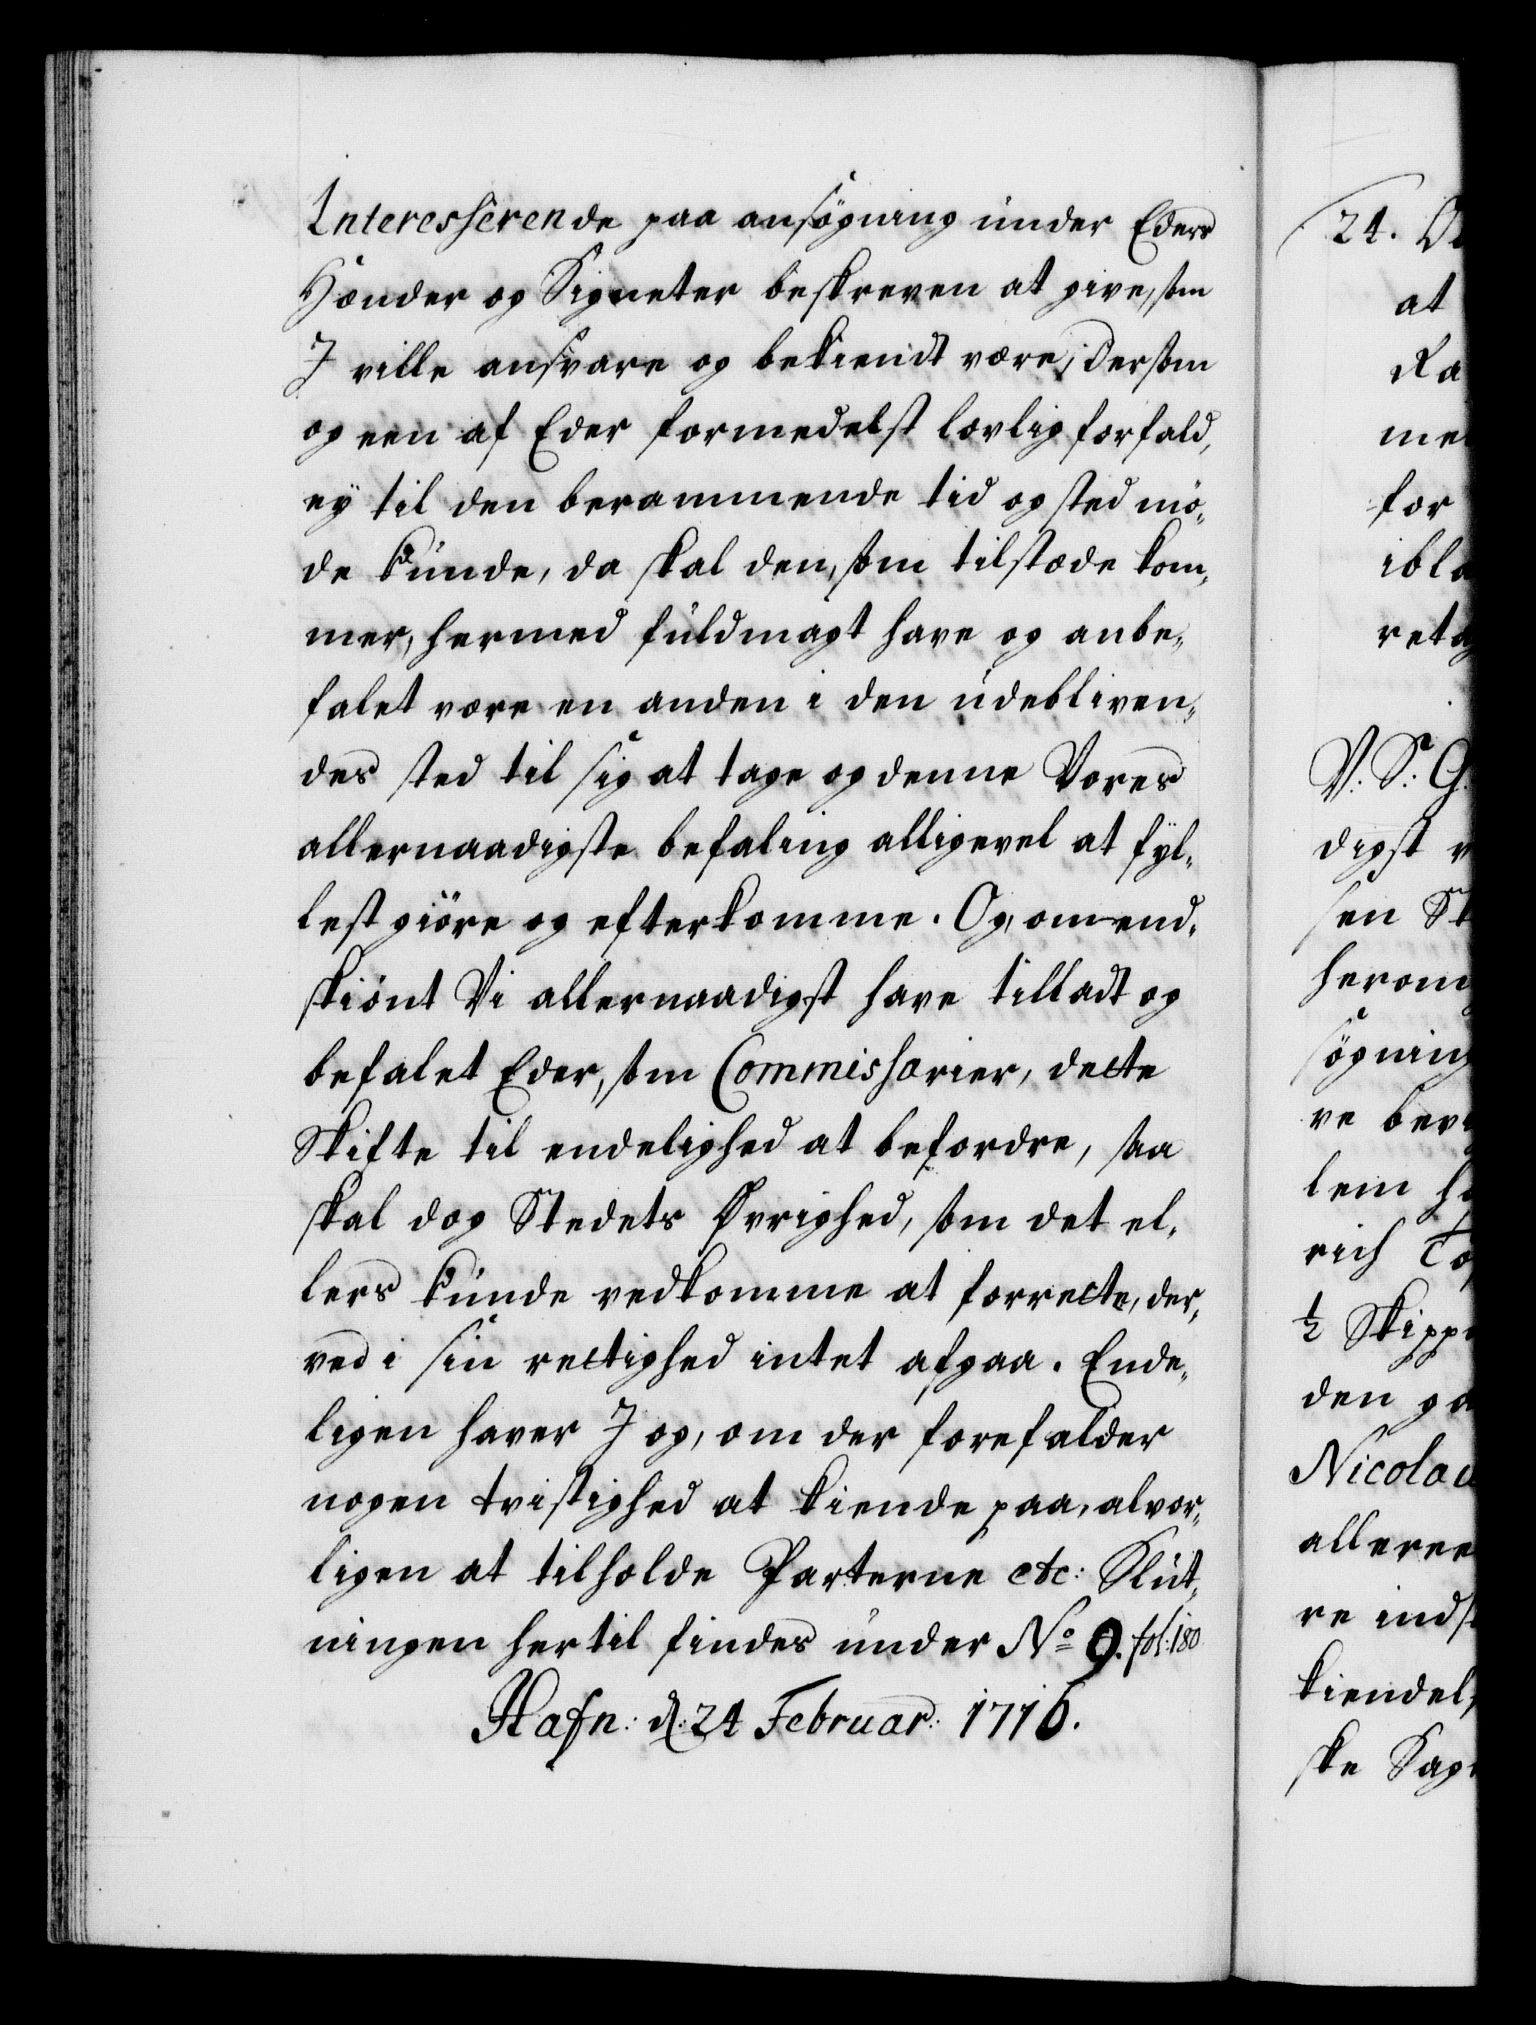 Interesserende paa ansøgning under Eders
Hænder og Signeter beskreven at give, som
I ville ansvare og bekiendt være; Dersom
og een af Eder formedelst lovlig forfald,
ey til den berammende tid og sted mö-
de kunde, da skal den, som tilstæde kom-
mer, hermed fuldmagt have og anbe-
falet være en anden i den udebliven-
des sted til sig at tage og denne Vores
allernaadigste befaling alligevel at fyl-
lest giöre og efterkomme. Og, omend-
skiönt Vi allernaadigst have tilladt og
befalet Eder, som Commissarier, dette
Skifte til endelighed at befordre, saa
skal dog Stedets Øvrighed, som det el-
lers kunde vedkomme at forrette, der-
ved i sin rettighed intet afgaa. Ende-
ligen haver I og, om der forefalder
nogen tvistighed at kiende paa, alvor-
ligen at tilholde Parterne etc: Slut-
ningen hertil findes under No 9. fol: 180
Hafn: d: 24 Februar: 1716.
24.
at
Ra
me
for
ibla
ret
V: S: G.
digst
sen
herom
søgning
ve bev
lem
rich
1/2 Skipp
den
Nicolau
alleree
re ind
kiendel
ske Sag